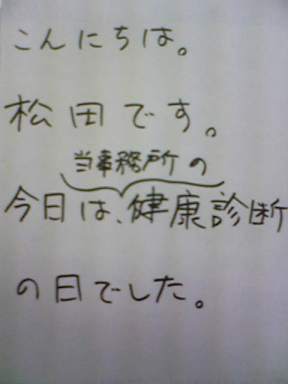 こんにちは。
松田です。
当事務所の
今日は、健康診断
の日でした。